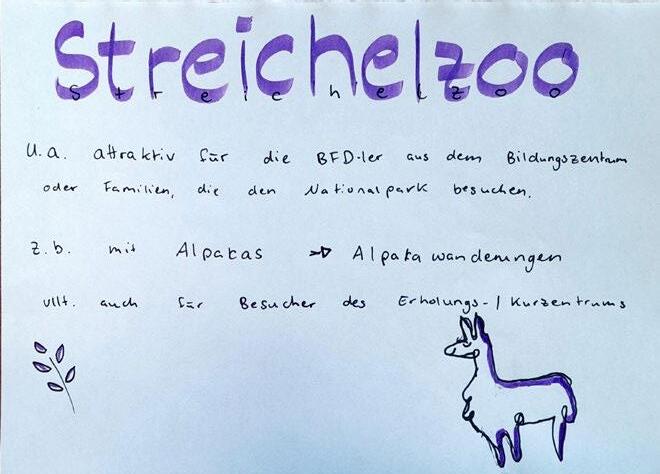 Streichelzoo
Streichelzoo
U.a. attraktiv für die BFD-ler aus dem Bildungszentrum
oder Familien, die den Nationalpark besuchen.
z.b. mit Alpakas → Alpakawanderungen
vllt. auch für Besucher des Erholungs-/Kurzentrums